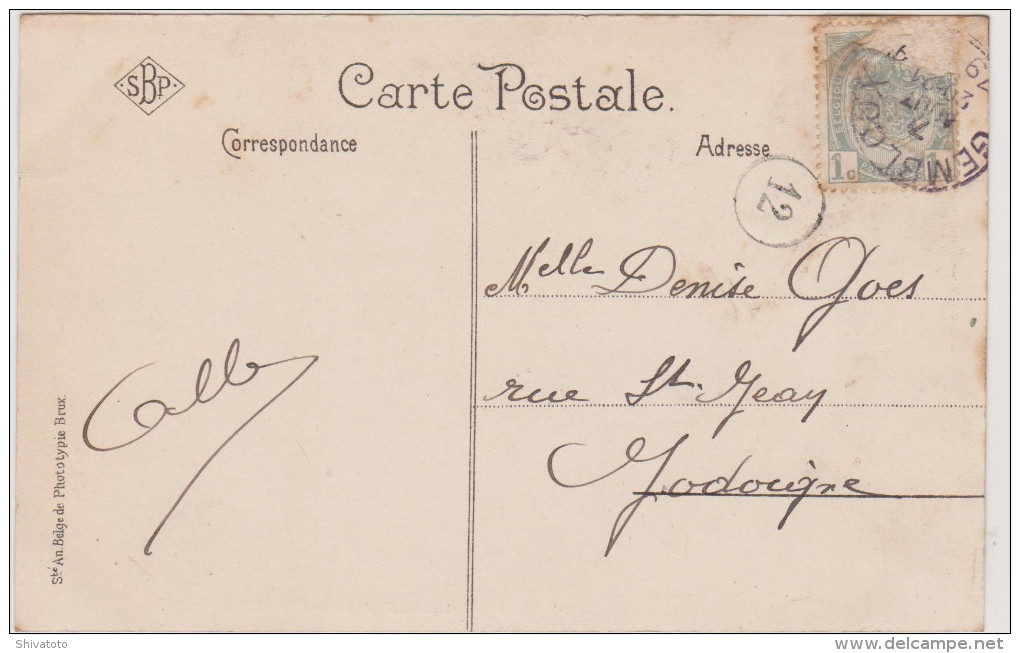 SBP
Carte Postale.
Correspondance
Adresse
1c
GEMBLOUX
12
Melle Denise Goes
rue St. Jean
Jodoigne
Sté An. Belge de Phototypie Brux.
Shivatoto
delcampe.net